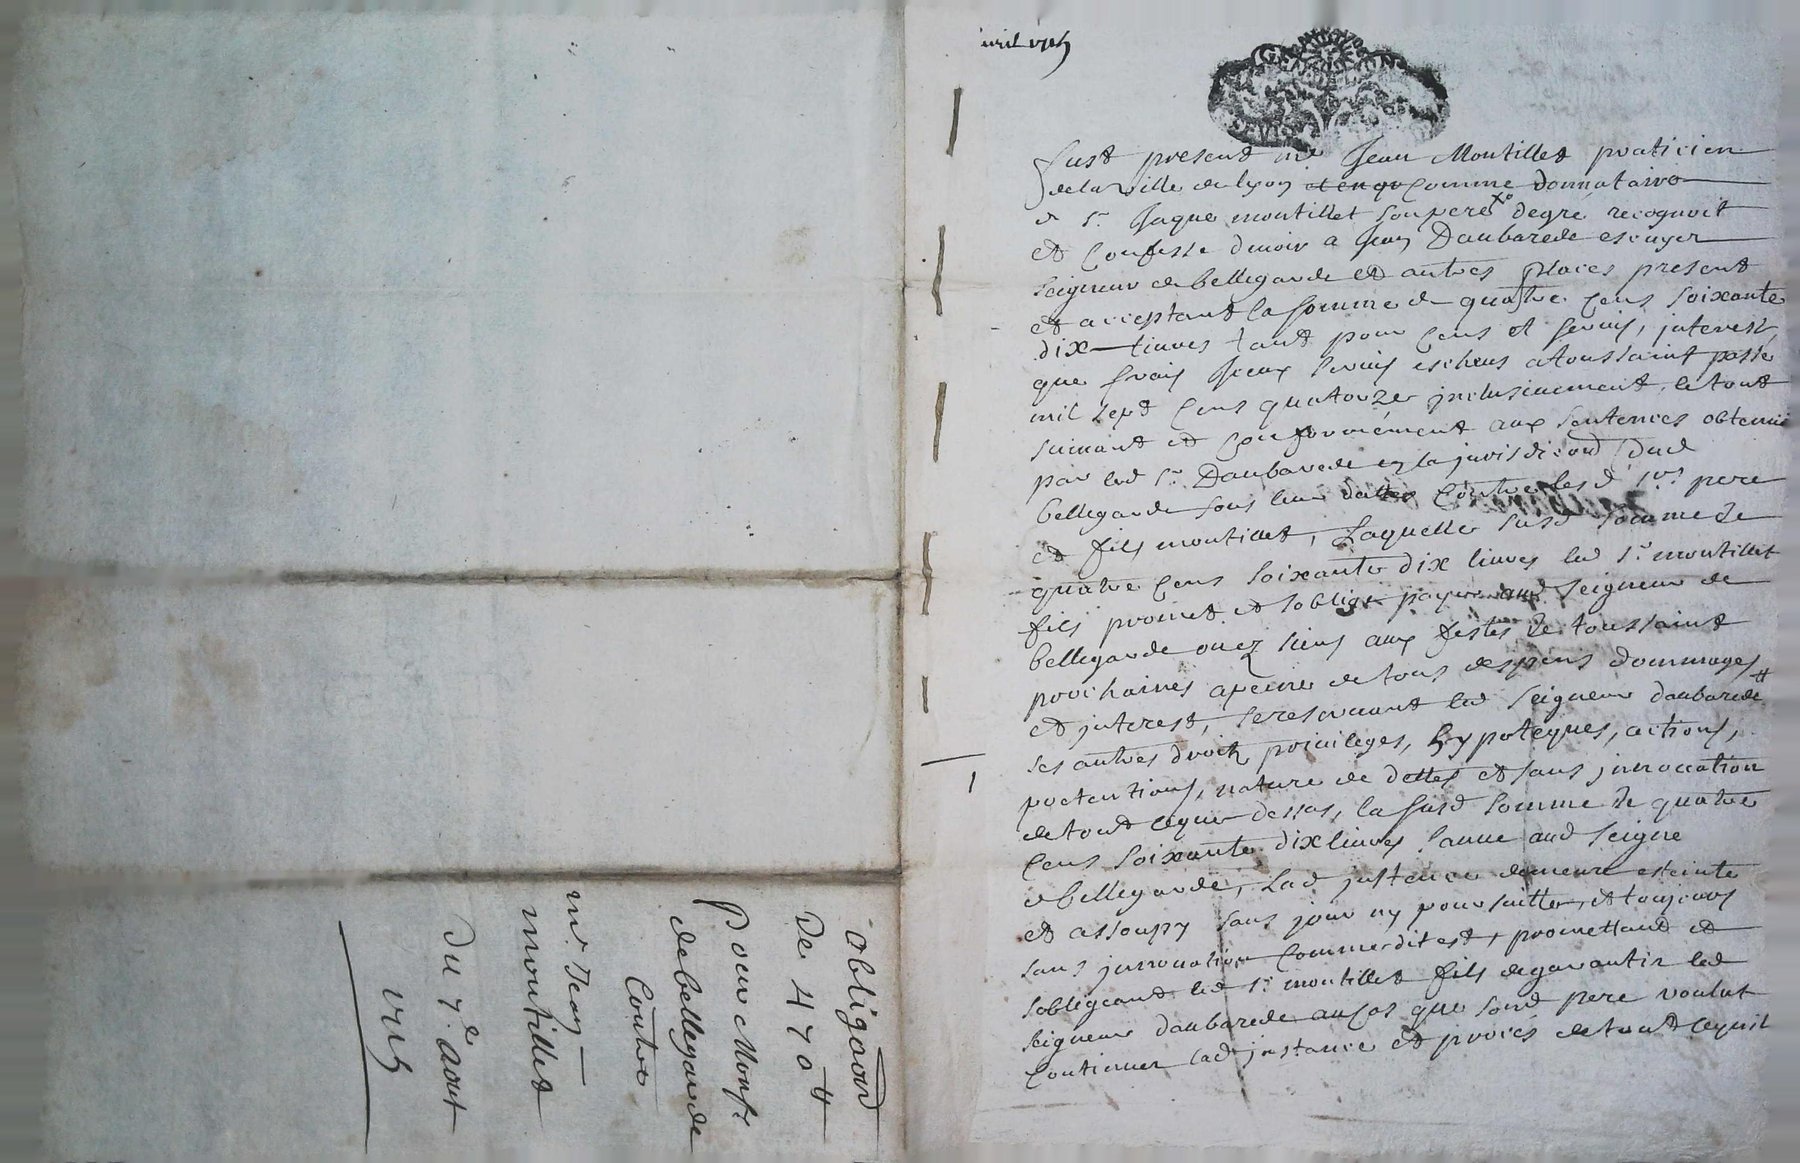 obligaõn
De 470 ₶
Pour Mons.r
de bellegarde
Contre
mr. Jean
montillet
Du 7.e aout
1715
avril 1715
Fust present me Jean Montillet praticien
de la ville de lyon comme donnataire
de Sr. Jaque montillet son pere degré recognoit
et confesse devoir a Jean Daubarede escuyer
seigneur de bellegarde et autres places present
et acceptant la somme de quatre cens soixante
dix livres tant pour cens et servis, interest
que frais iceux servis escheus a toussaint passé
mil sept cens quatorze inclusivement, le tout
suivant et conformément aux sentences obtenues
par led Sr. Daubarede en la jurisdicõn dud
bellegarde sous leur dattes contre lesd srs pere
et fils montillet, Laquelle susd somme de
quatre cens soixante dix livres led Sr. montillet
fils promet et soblige payer aud seigneur de
bellegarde ou ez siens aux festes de toussaint
prochaines apeine de tous despens dommages
et interest, se reservant led seigneur daubarede
ses autres droits privileges, hypoteques, actions,
pretentions, nature de dettes et sans innovation
de tout ceque dessus, la susd somme de quatre
cens soixante dix livres aud seigre
de bellegarde, Lad instance demeure esteinte
et assoupy sans jour ny poursuitte, et toujours
sans innovation comme dit est, promettant et
sobligeant led Sr. montillet fils de garantir led
seigneur daubarede au cas que sond pere voulut
continuer lad instance et procés de tout cequil